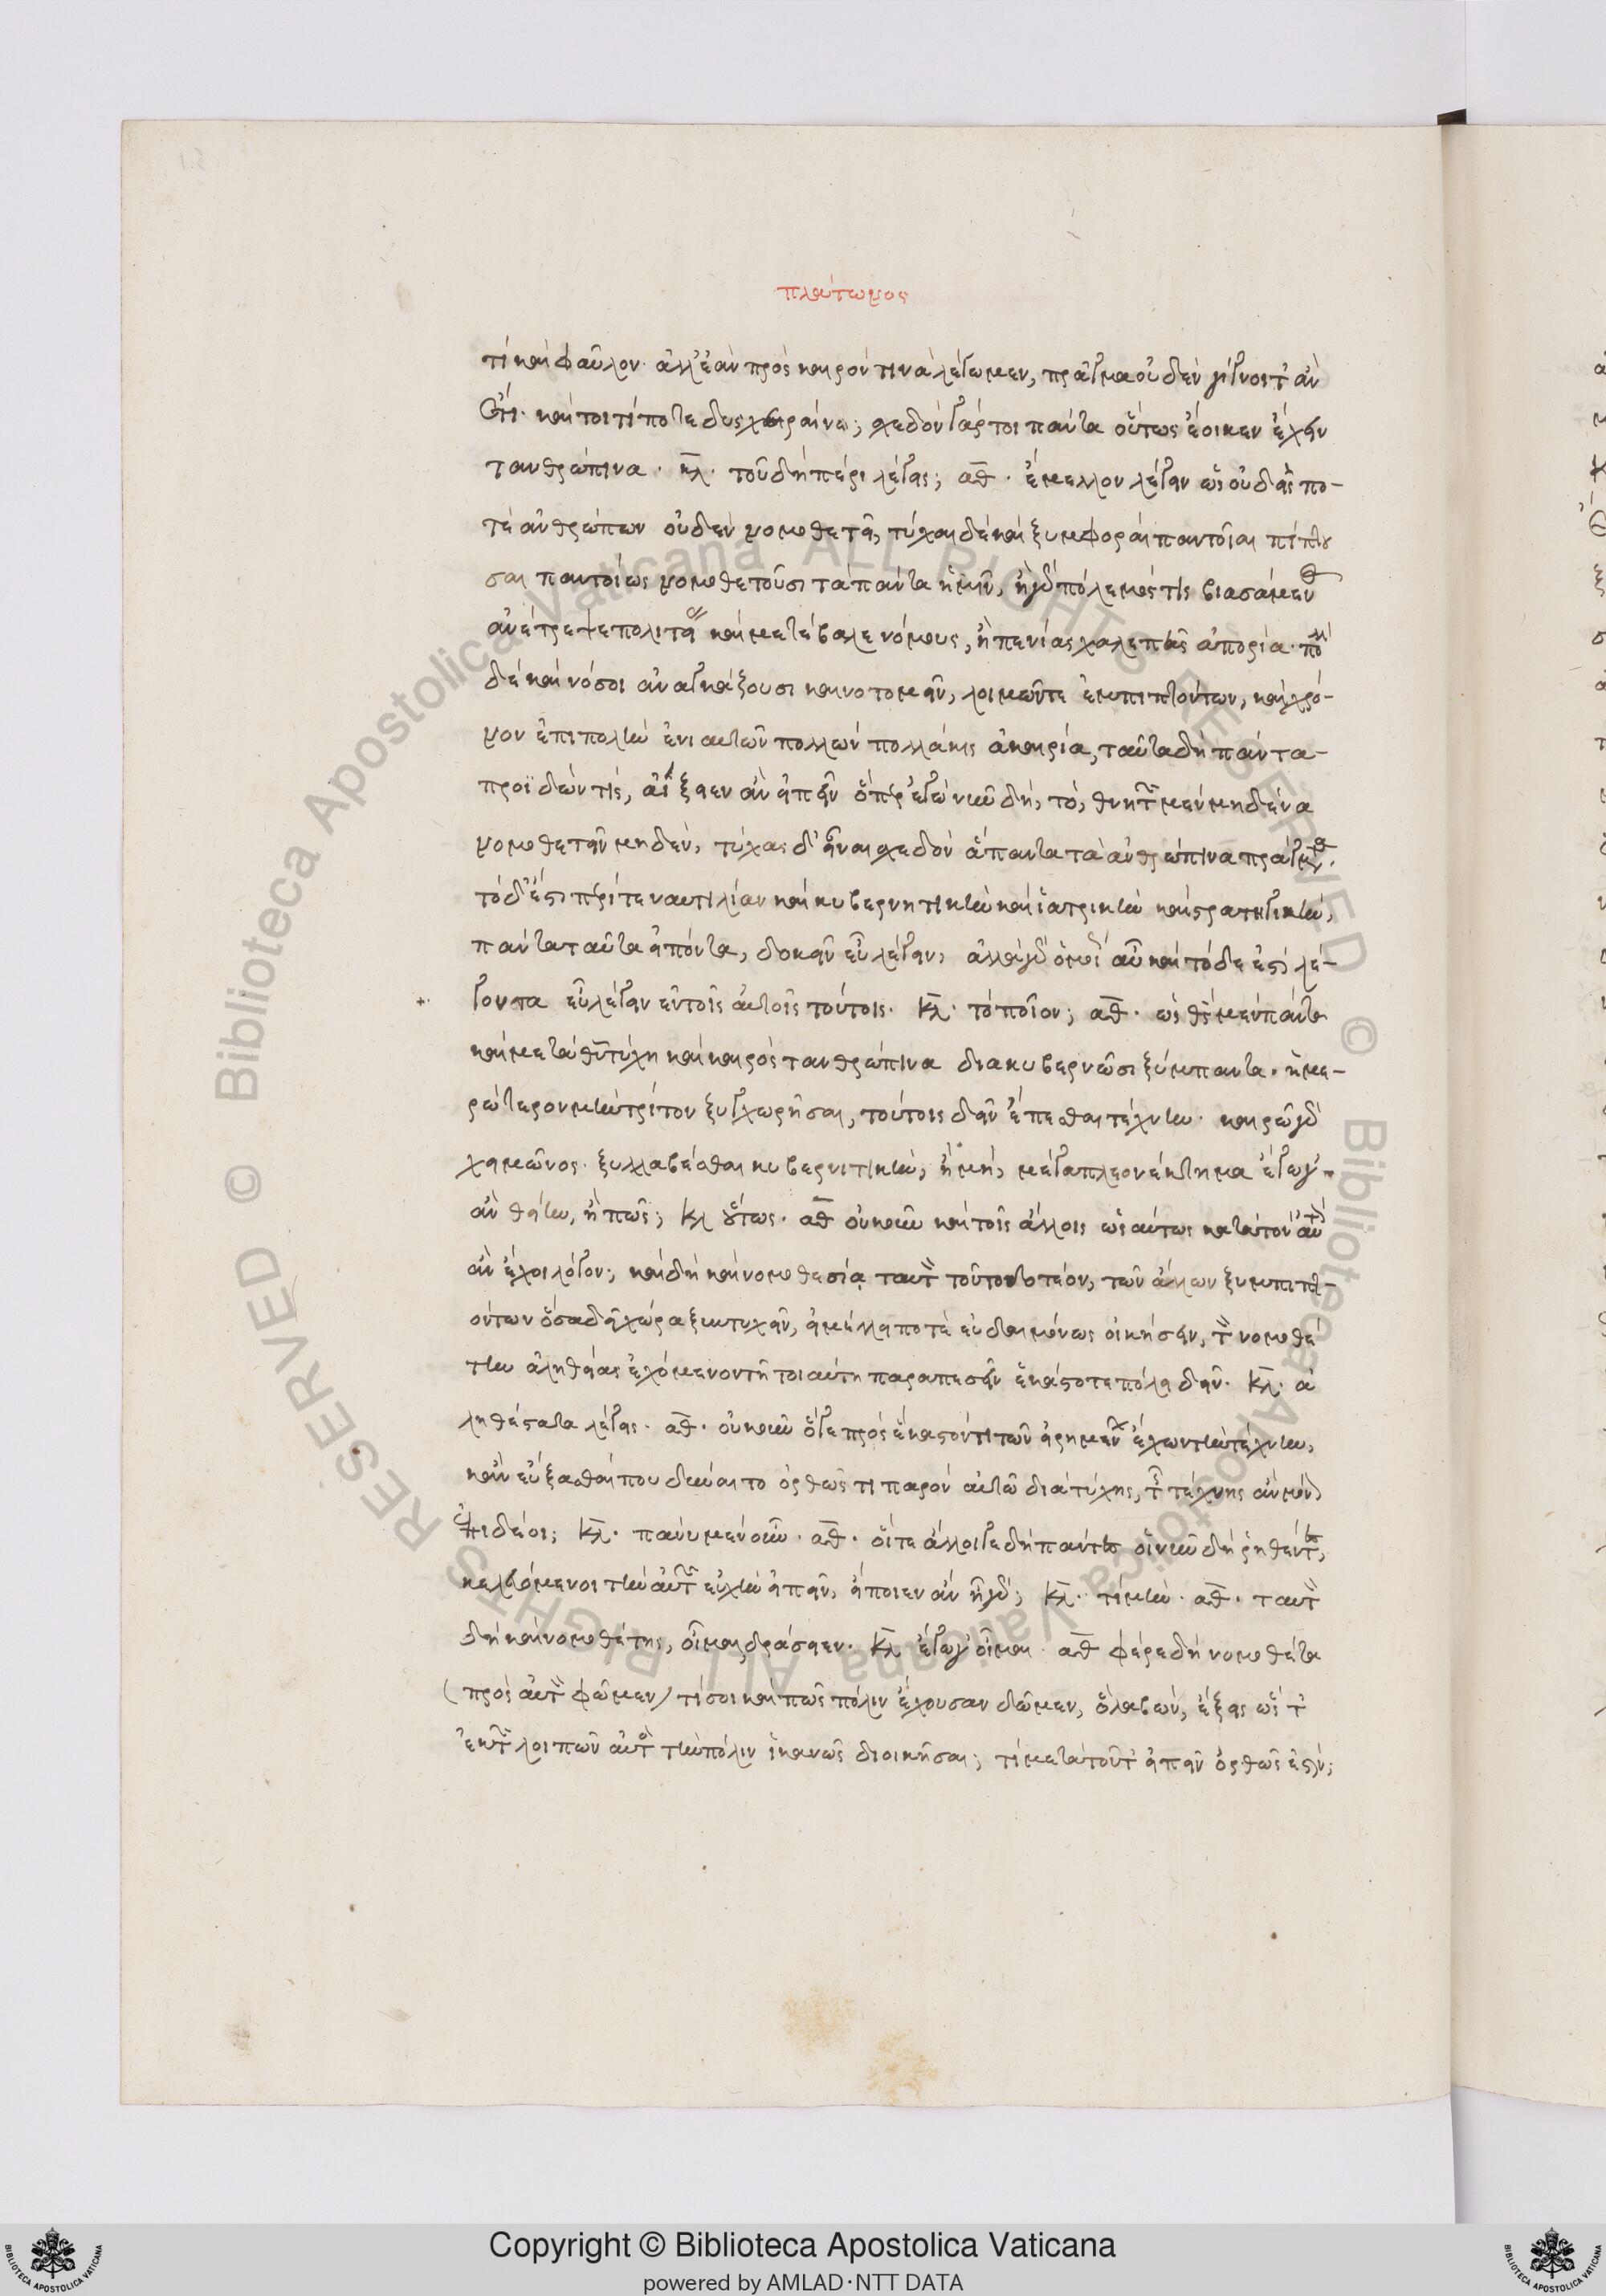 πλάτωνος
τὶ καὶ φαῦλον. ἀλλ' ἐὰν πρὸς καιρόν τινα λέγωμεν, πρᾶγμα οὐδὲν γίγνοιτ' ἂν
ἔτι. καί τοι τί ποτε δυσχεραίνω; σχεδὸν γάρ τοι πάντα οὕτως ἔοικεν ἔχειν
τανθρώπινα. κλ. τοῦ δὴ πέρι λέγεις; αθ. ἔμελλον λέγειν ὡς οὐδείς πο-
τὲ ἀνθρώπων οὐδὲν νομοθετεῖ, τύχαι δὲ καὶ ξυμφοραὶ παντοῖαι πίπτου
σαι παντοίως νομοθετοῦσι τὰ πάντα ἡμῖν, ἢ γὰρ πόλεμός τις βιασάμενος
ἀνέτρεψε πολιτείας καὶ μετέβαλε νόμους, ἢ πενίας χαλεπῆς ἀπορία. πολλὰ
δὲ καὶ νόσοι ἀναγκάζουσι καινοτομεῖν, λοιμῶν τε ἐμπιπτόντων, καὶ χρό-
νον ἐπιπολὺν ἐνιαυτῶν πολλῶν πολλάκις ἀκαιρία, ταῦτα δὴ πάντα
προϊδών τις, ἀΐξειεν ἂν εἰπεῖν ὅπερ ἐγὼ νῦν δή, τό, θνητὸν μὲν μηδένα
νομοθετεῖν μηδέν, τύχας δ' εἶναι σχεδὸν ἅπαντα τὰ ἀνθρώπινα πράγματα.
τὸ δ' ἔστι περί τε ναυτιλίαν καὶ κυβερνητικὴν καὶ ἰατρικὴν καὶ στρατηγικήν,
πάντα ταῦτα εἰπόντα, δοκεῖν εὖ λέγειν, ἀλλὰ γὰρ ὁμοίως αὖ καὶ τόδε ἔστι λέ-
γοντα εὖ λέγειν ἐν τοῖς αὐτοῖς τούτοις. κλ. τὸ ποῖον; αθ. ὡς θεὸς μὲν πάντα
καὶ μετὰ θεοῦ τύχη καὶ καιρὸς τανθρώπινα διακυβερνῶσι ξύμπαντα. ἡμε-
ρώτερον μὴν τρίτον ξυγχωρῆσαι, τούτοις δεῖν ἕπεσθαι τέχνην. καιρῷ γὰρ
χειμῶνος. ξυλλαβέσθαι κυβερνιτικήν, ἢ μή, μέγα πλεονέκτημα ἔγωγ'
ἂν θείην, ἢ πῶς; κλ οὕτως. αθ οὐκοῦν καὶ τοῖς ἄλλοις ὡσαύτως κατὰ τὸν αὐτὸν
ἂν ἔχοι λόγον; καὶ δὴ καὶ νομοθεσίᾳ ταυτὸν τοῦτο δοτέον, τῶν ἄλλων ξυμπιπτ-
όντων ὅσα δεῖ χώρα ξυντυχεῖν, εἰ μέλλει ποτὲ εὐδαιμόνως οἰκήσειν, τὸν νομοθέ
την ἀληθείας ἐχόμενον τῇ τοιαύτῃ παραπεσεῖν ἑκάστοτε πόλει δεῖν. κλ. ἀ
ληθέστατα λέγεις. αθ. οὐκοῦν ὅγε πρὸς ἕκαστόν τι τῶν εἰρημένων ἔχων τὴν τέχνην,
κἂν εὔξασθαί που δύναιτο ὀρθῶς τι παρὸν αὐτῷ διὰ τύχης, τῆς τέχνης ἂν μόνον
ἐπιδέοι; κλ. πάνυ μὲν οὖν. αθ. οἵ τε ἄλλοι γε δὴ πάντες οἱ νῦν δὴ ῥηθέντες,
κελευόμενοι τὴν αὐτῶν εὐχὴν εἰπεῖν, εἴποιεν ἂν ἦ γάρ; κλ. τί μήν. αθ. ταυτὸν
δὴ καὶ νομοθέτης, οἶμαι, δράσειεν. κλ ἔγωγ' οἶμαι. αθ φέρε δὴ νομοθέτα
(πρὸς αὐτὸν φῶμεν) τί σοι καὶ πῶς πόλιν ἔχουσαν δῶμεν, ὃ λαβών, ἕξεις ὥστ'
ἐκ τῶν λοιπῶν αὐτὸς τὴν πόλιν ἱκανῶς διοικῆσαι; τί μετὰ τοῦτ' εἰπεῖν ὀρθῶς ἔστιν;
Copyright © Biblioteca Apostolica Vaticana
powered by AMLAD·NTT DATA